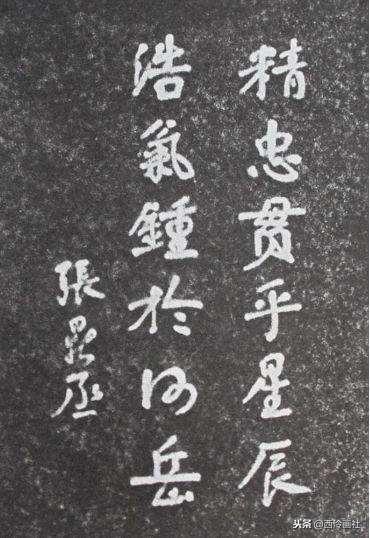 精忠贯乎星辰
浩氣鍾於河岳
張
丞
头条 @西泠画社